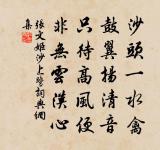 沙頭一水禽
鼓翼揚清音
只待高風便
非無雲漢心
張文姬沙上鷺詞典網
集